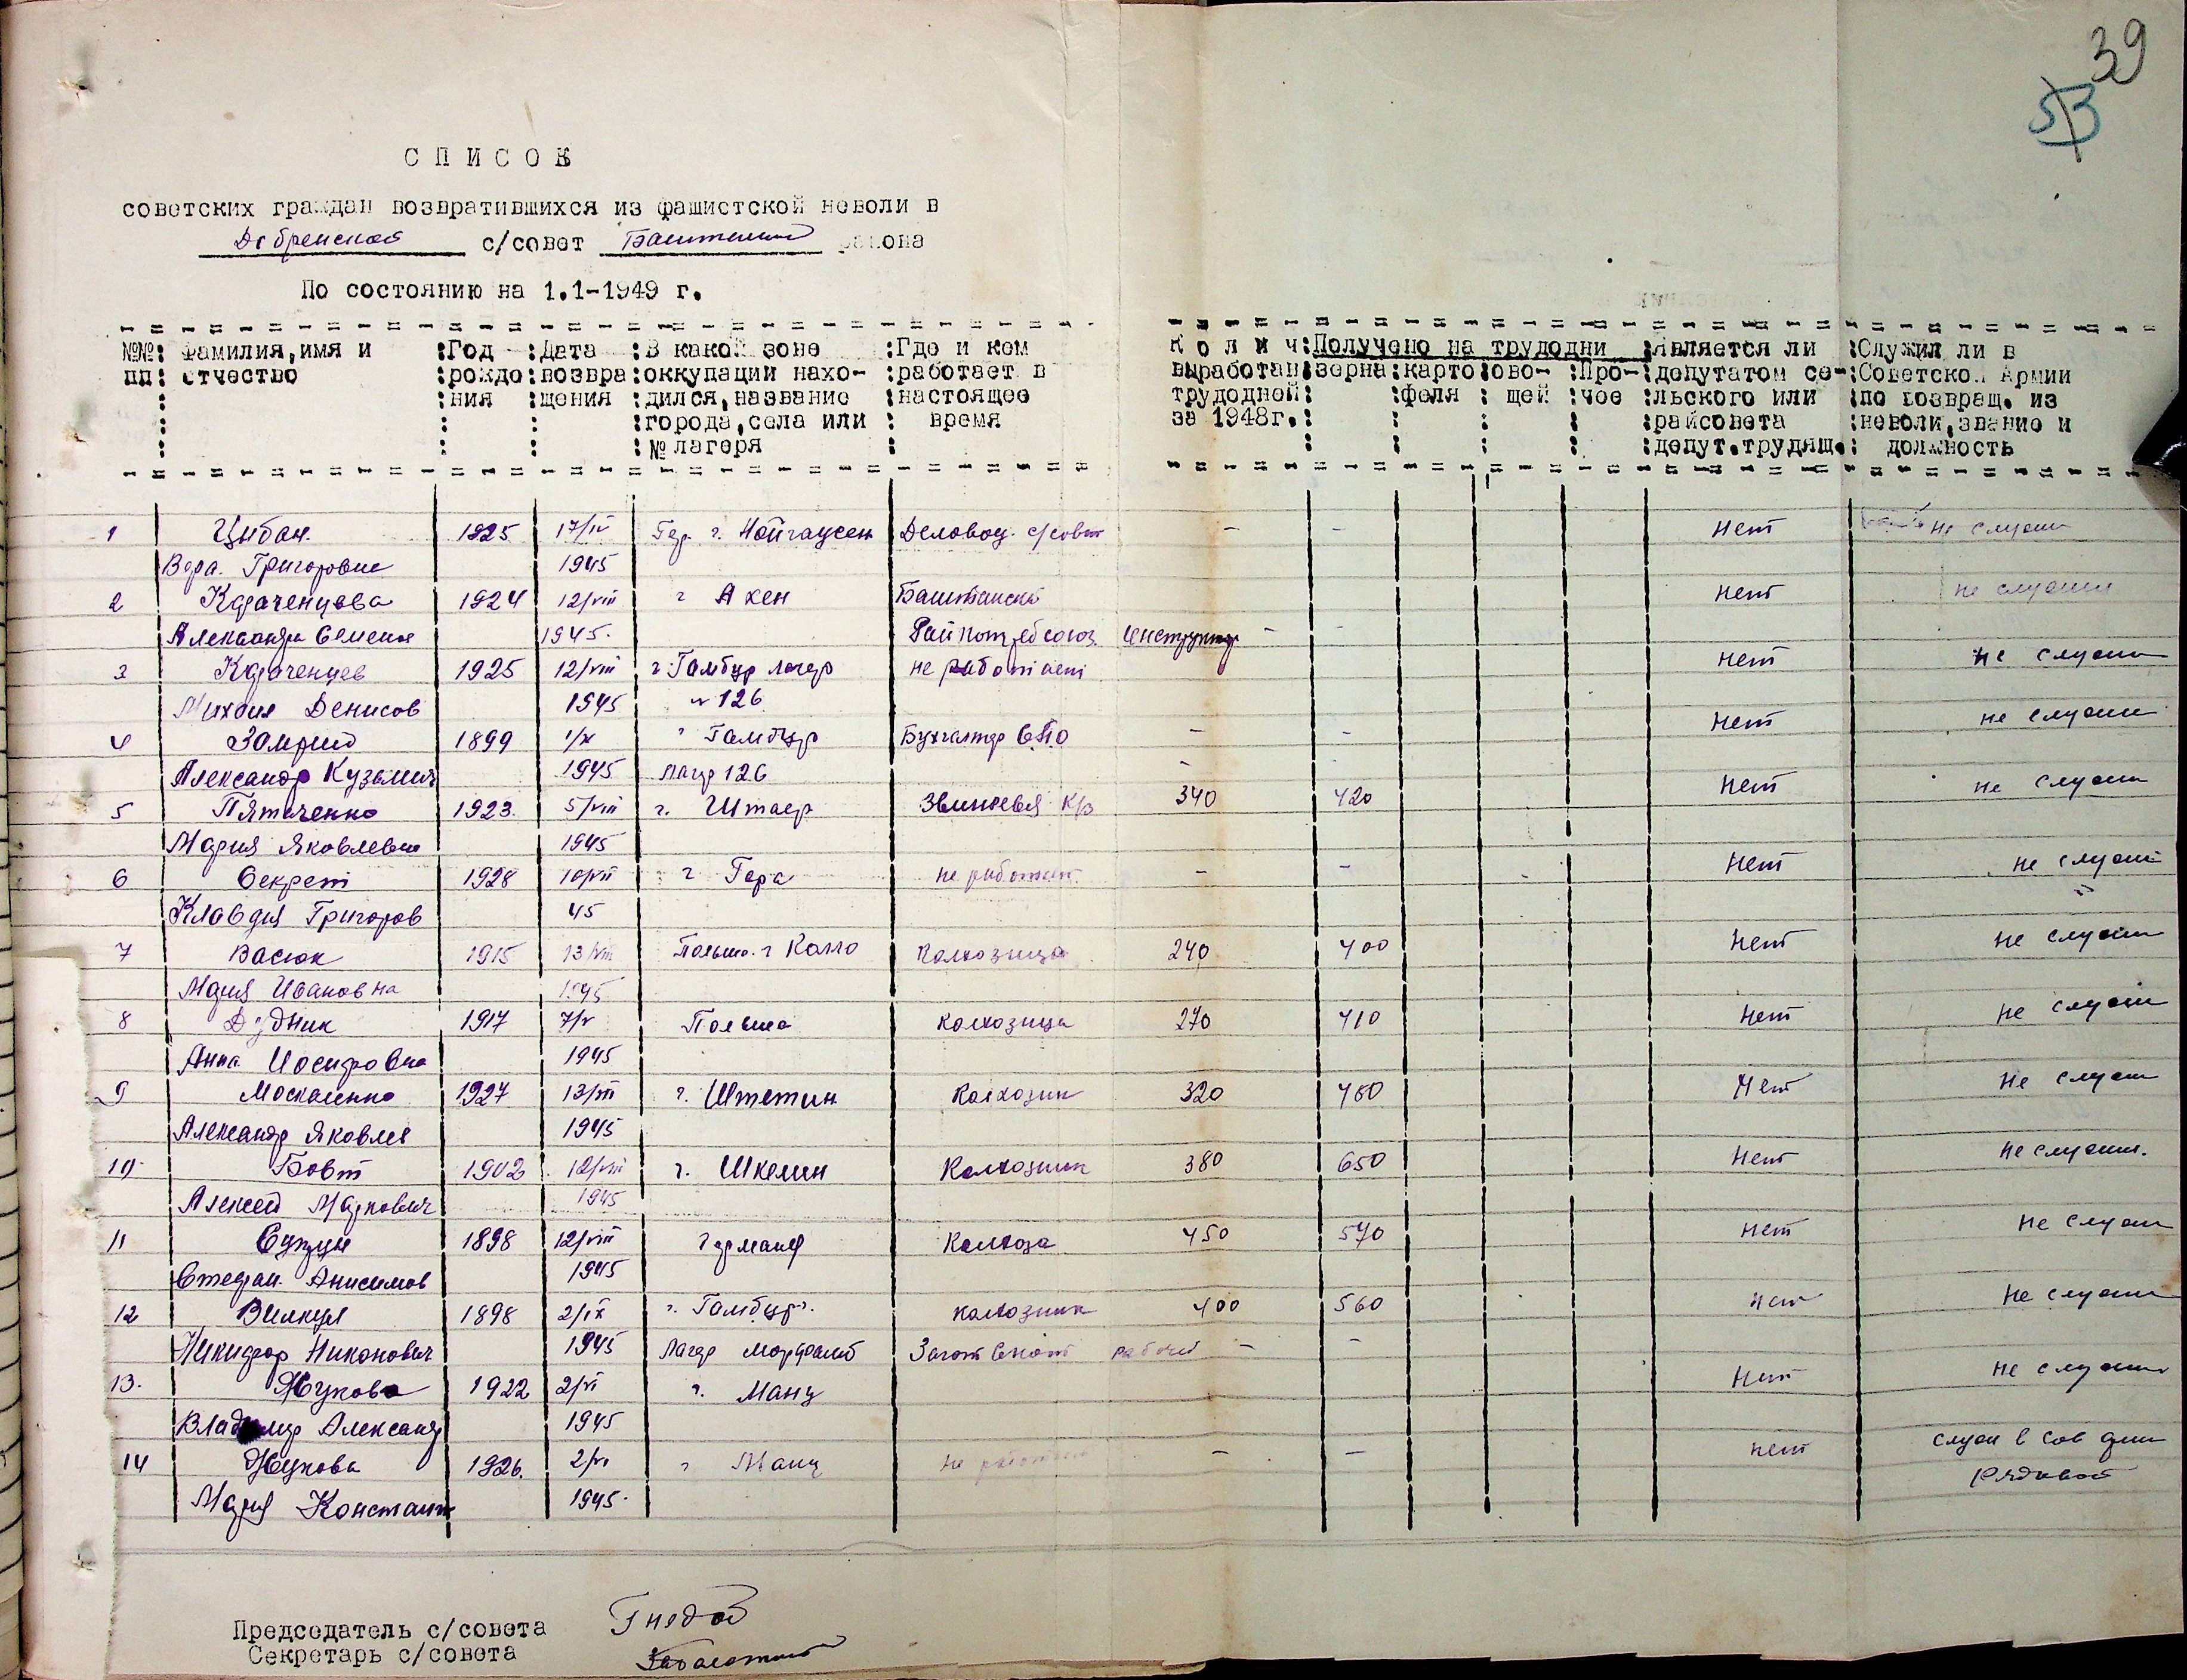 39
53
СПИСОК
советских граждан возвратившихся из фашистской неволи в
Добренской с/совет района
По состоянию на 1.1-1949 г.
№№ пп : Фамилия, имя и отчество : Год рождения : Дата возвращения : В какой зоне оккупации находился, название города, села или № лагеря : Где и кем работает в настоящее время : Колич выработан трудодней за 1948г. : Получено на трудодни : зерна : картофеля : овощей : Прочее : Является ли депутатом сельского или райсовета депут. трудящ. : Служил ли в Советской Армии по возвращ. из неволи, звание и должность
1 Цибан. 1925 17/IV Гер. г. Нойгаусен Деловод. с/совет - - нет не служил
Вера. Григоровна 1945
2 1924 12/VIII г Ахен Баштанский нет не служил
Александра Семенов 1945. Райпотребсоюз. инструктор - -
3 1925 12/VIII г. Гамбур лагерь не работает нет не служил
Михаил Денисов 1945 № 126
4 1899 1/X г Гамбур Бухгалтер СПО - - нет не служил
Александр Кузьмич 1945 лагер 126 -
5 Пятаченко 1923. 5/VIII г. Звеневая к/з 340 420 нет не служил
Мария Яковлевна 1945
6 Секрет 1928 10/VII г Гера не работает - - нет не служил
Клавдия Григоров 45
7 Васюк 1915 13/VIII Польша. г Колхозница 240 400 нет не служил
Мария Ивановна 1945
8 Дудник 1917 7/V Польша колхозница 270 410 нет не служил
Анна Иосифовна 1945
9 Москаленко 1927 13/VIII г. Штетин Колхозник 320 480 нет не служил
Александр Яковлев 1945
10 Бовт 1902 12/VIII г. Шкелин Колхозник 380 650 нет не служил.
Алексей Маркович 1945
11 1898 12/VIII Германия Колхоза 450 570 нет не служил
Стефан. Анисимов 1945
12 Вилкул 1898 2/IX г. Гамбург. колхозник 400 560 нет не служил
Никифор Никонович 1945 Лагер Загот Скот рабочий - -
13. Жукова 1922 2/VI г. Манц нет не служил
Владимир Александр 1945
14 Жукова 1926. 2/VI г Манц не работает - - нет служ в сов арм
Мария Констант 1945. Рядовой
Председатель с/совета Гнедой
Секретарь с/совета